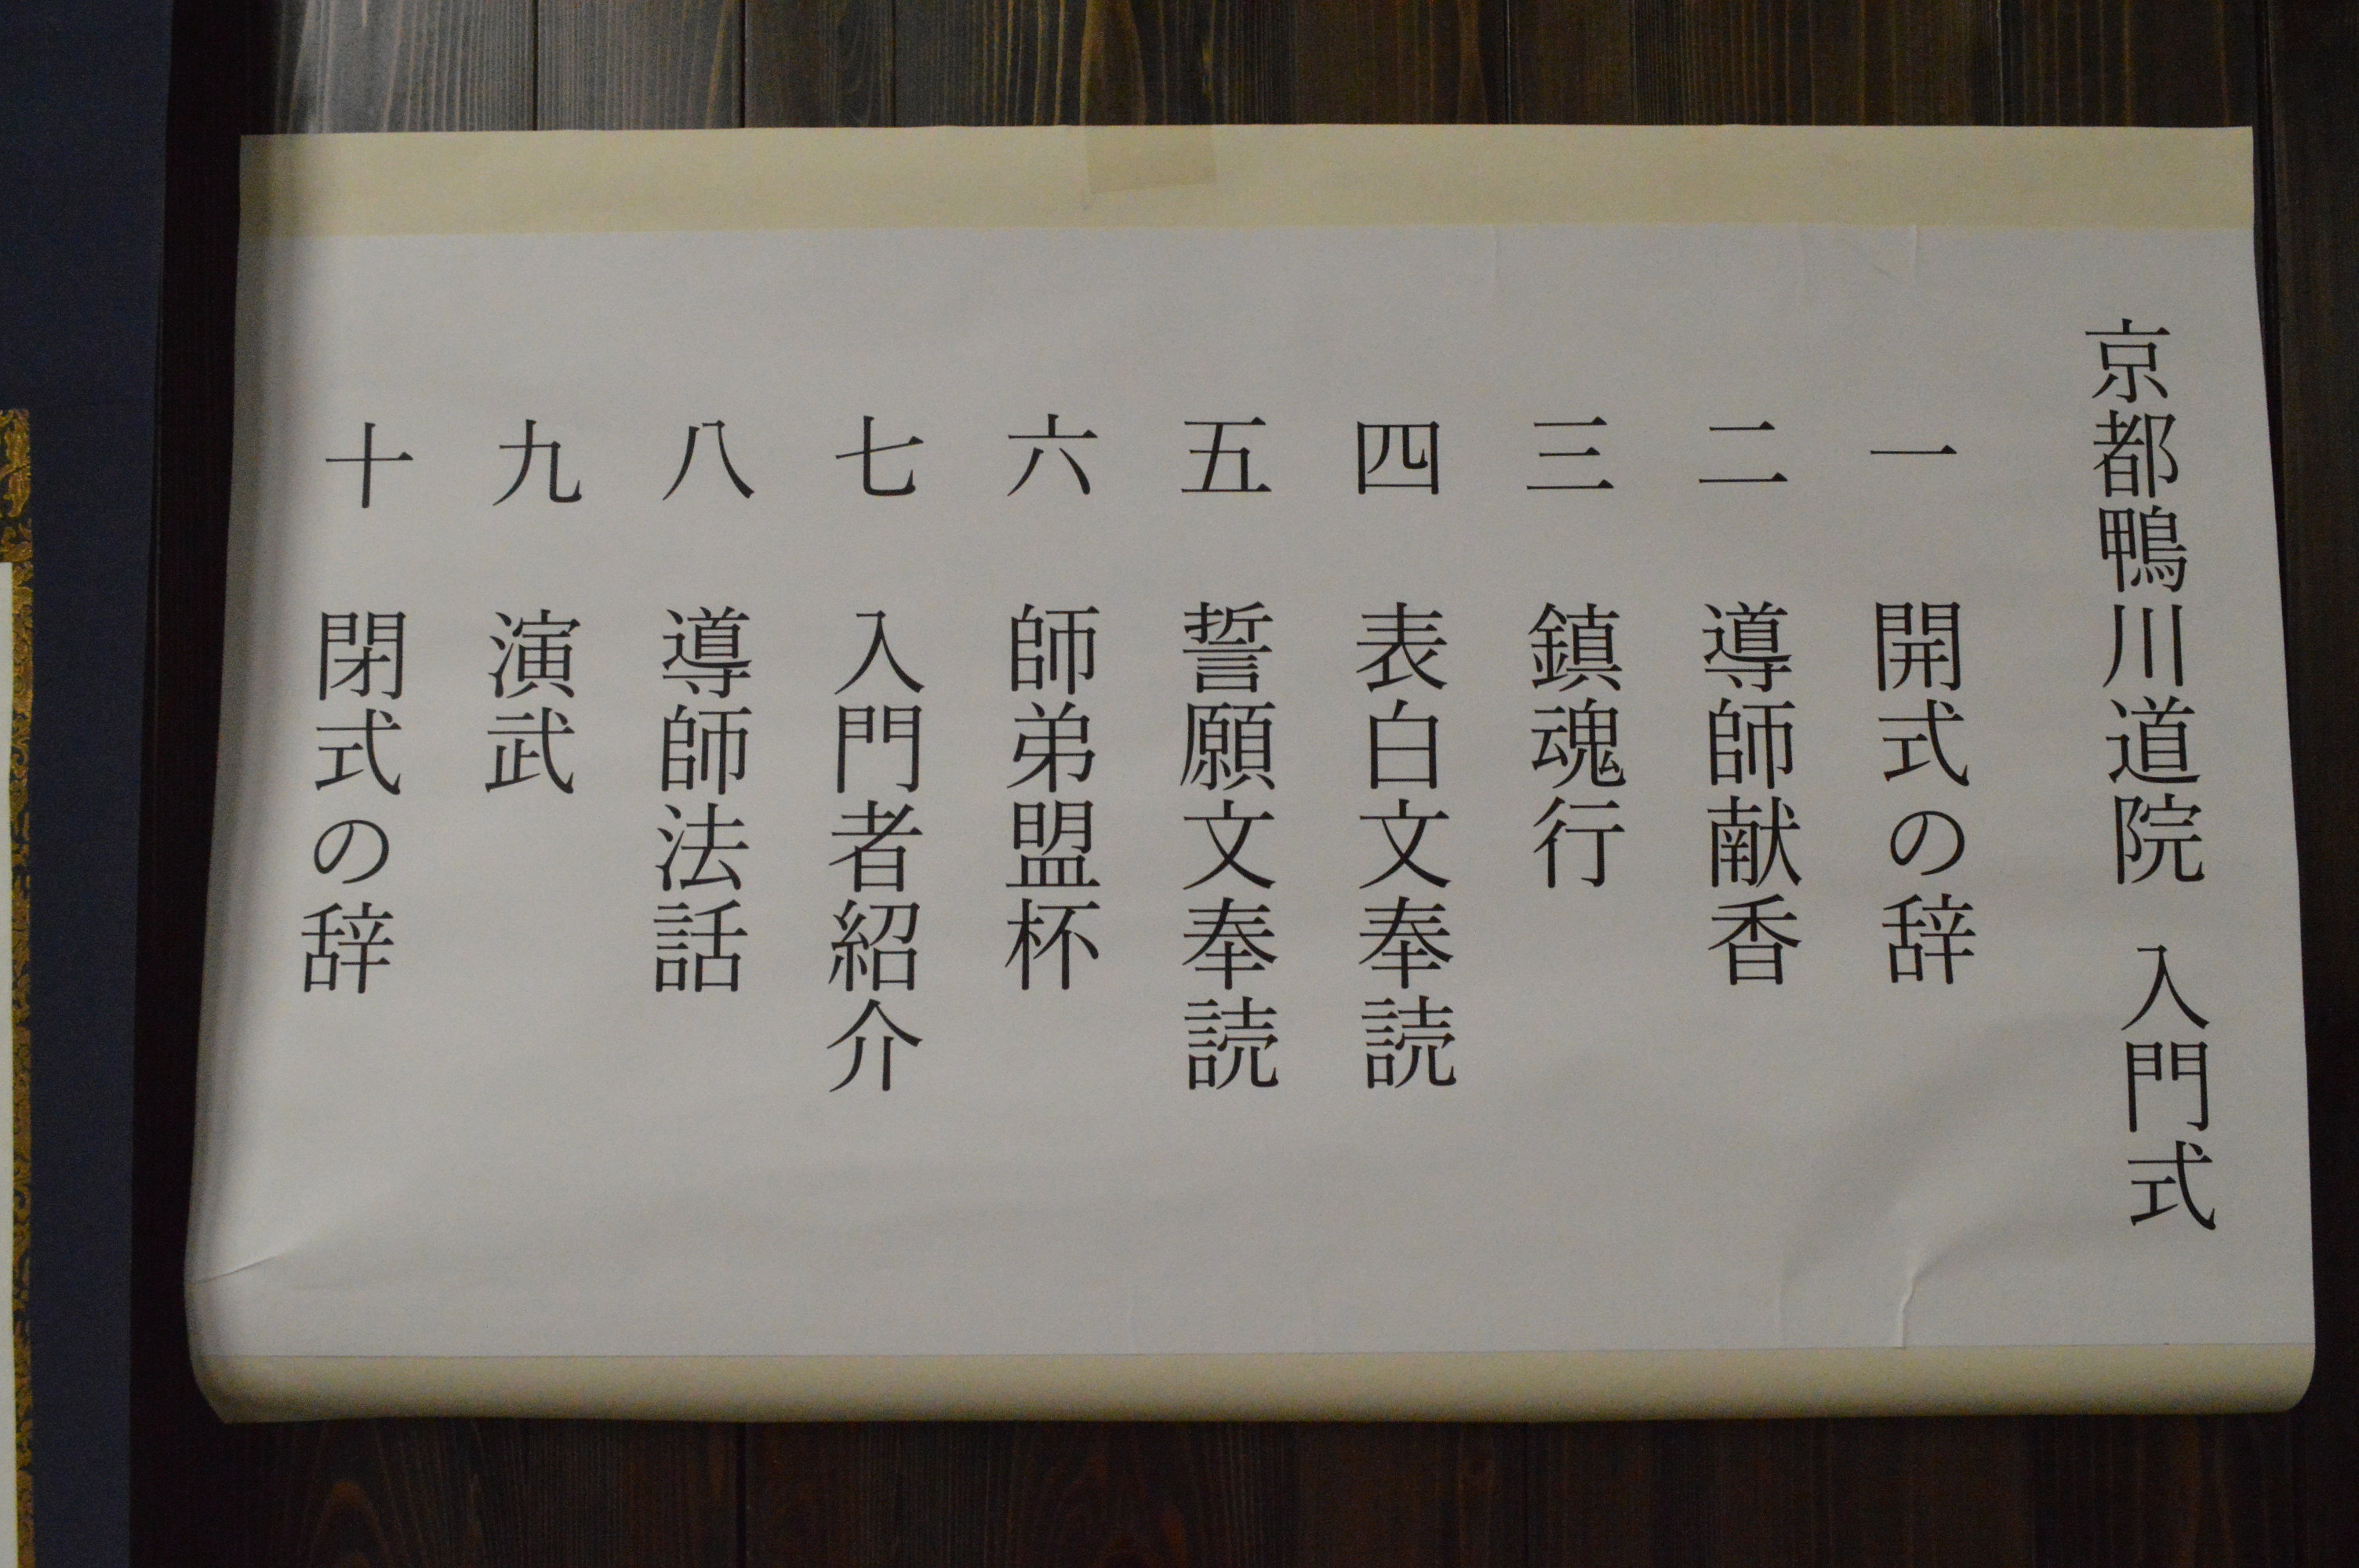 京都鴨川道院 入門式
一 開式の辞
二 導師献香
三 鎮魂行
四 表白文奉読
五 誓願文奉読
六 師弟盟杯
七 入門者紹介
八 導師法話
九 演武
十 閉式の辞